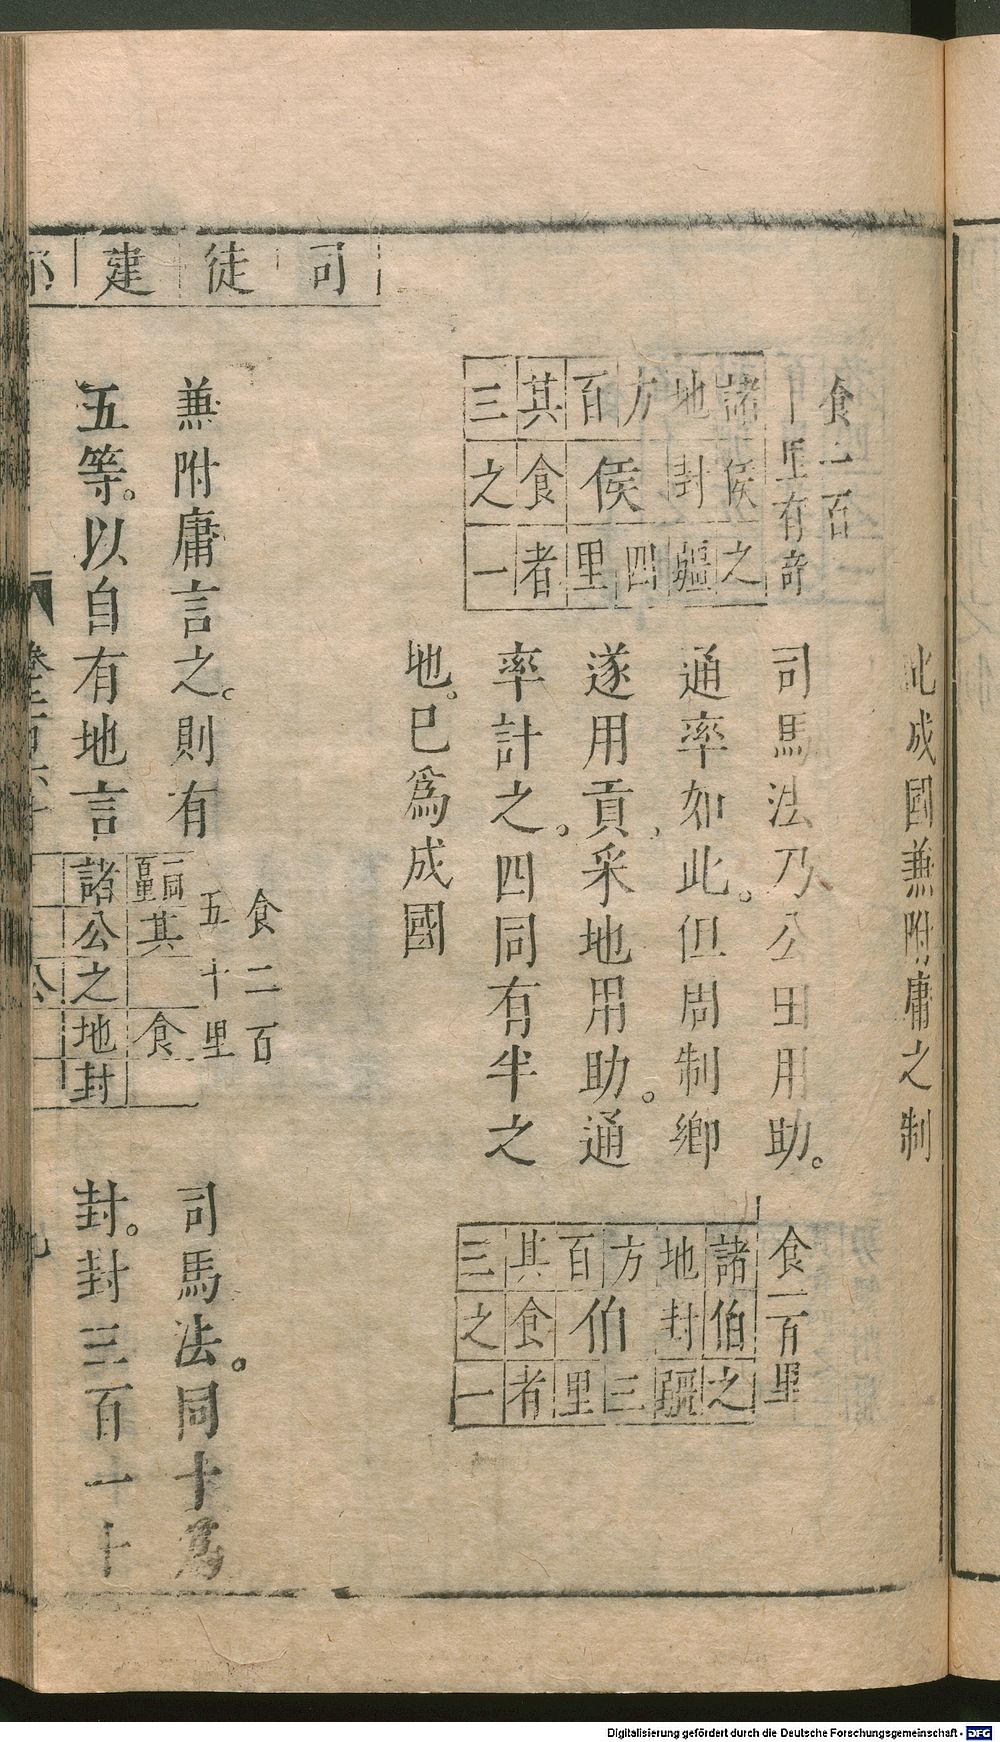 此成國兼附庸之制
食二百
十里有奇
諸侯之
地封疆
方四
百侯里
其食者
三之一
司馬法乃公田用助。
通率如此。但周制鄉
遂用貢、采地用助。通
率計之。四同有半之
地。已爲成國
食一百里
諸伯之
地封疆
方三
百伯里
其食者
三之一
司徒建
兼附庸言之。則有
五等。以自有地言
食二百
五十里
一同
百里
其食
諸公之地封
公
司馬法。同十爲
封。封三百一十
Digitalisierung gefördert durch die Deutsche Forschungsgemeinschaft - DFG